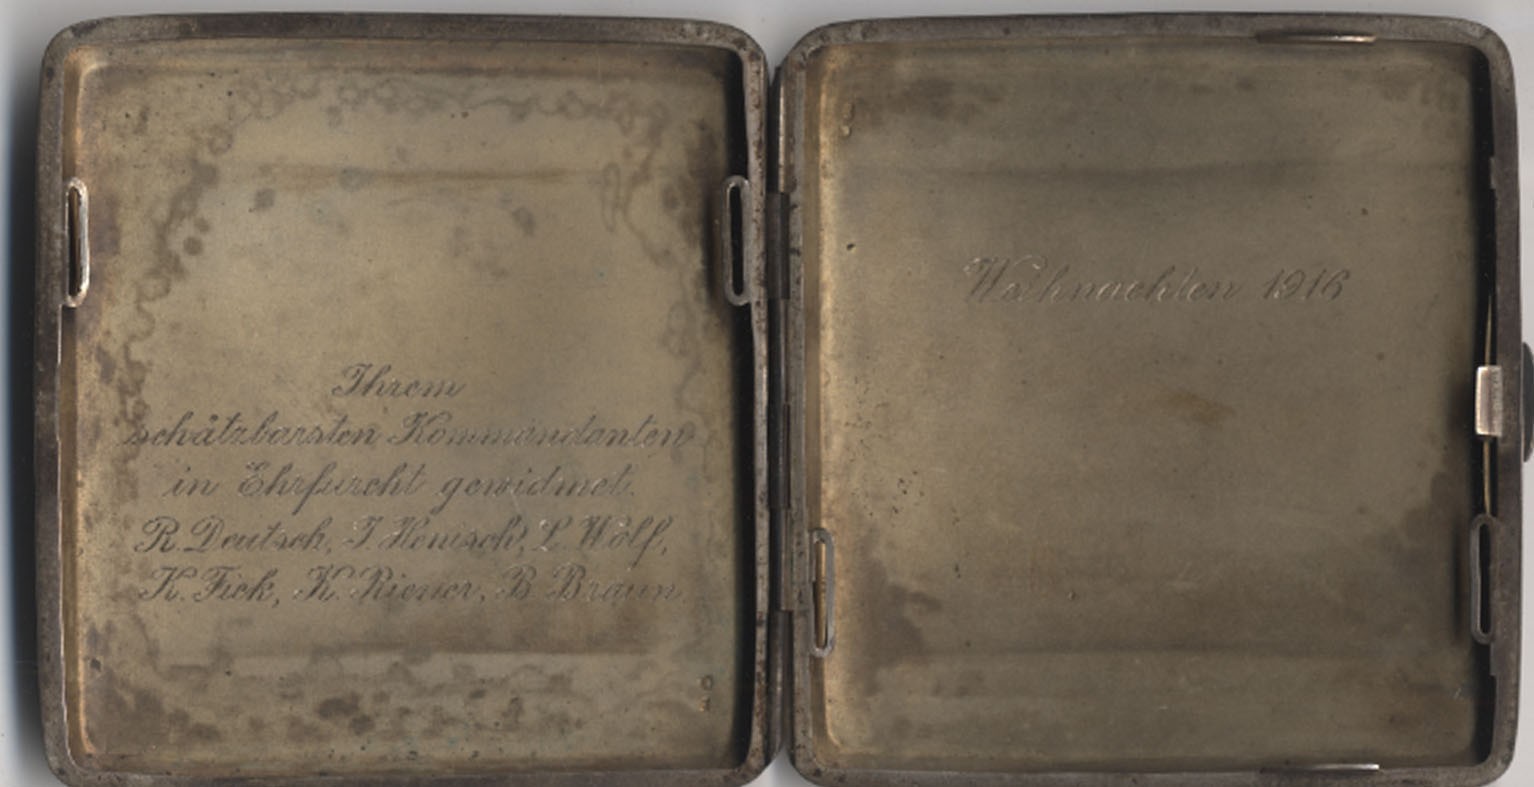 Ihrem
schätzbarsten Kommandanten
in Ehrfurcht gewidmet.
R. Deutsch, J. Hemsch, L. Wolf,
K. Fick, K. Riener, B. Braun.
Weihnachten 1916